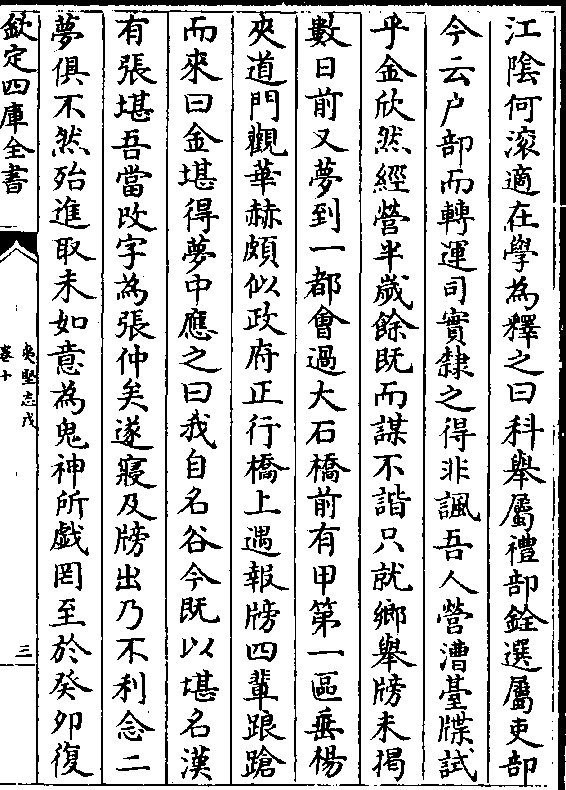 江隂何滚適在學為釋之曰科舉屬禮部銓選屬吏部
今云户部而轉運司實隸之得非諷吾人營漕臺牒試
乎金欣然經營半歲餘既而謀不諧只就鄉舉牓未揭
數日前又夢到一都會過大石橋前有甲第一區垂楊
夾道門觀華赫頗似政府正行橋上遇報牓四輩踉蹌
而來曰金堪得夢中應之曰我自名谷今既以堪名漢
有張堪吾當改字為張仲矣遂寢及牓出乃不利念二
夢俱不然殆進取未如意為鬼神所戲罔至於癸卯復
欽定四庫全書
夷堅志戊
卷十
三